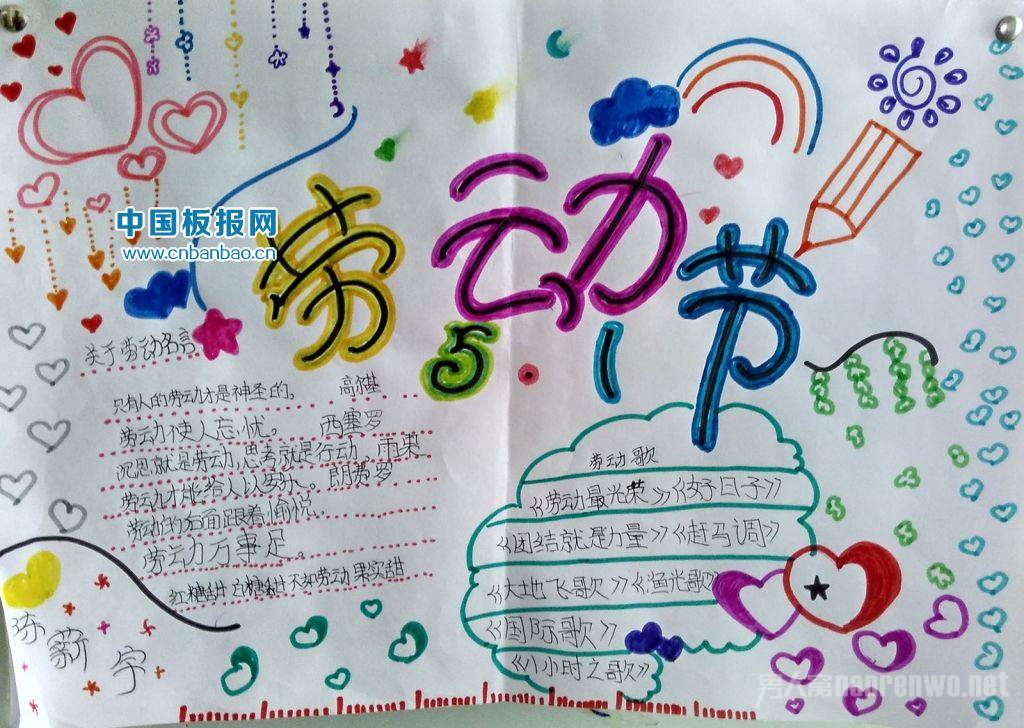 劳动节
5.1
中国板报网
www.cnbanbao.cn
关于劳动名言
只有人的劳动才是神圣的。 高尔基
劳动使人忘忧。 西塞罗
沉思就是劳动,思考就是行动。雨果
劳动才能给人以安乐。朗费罗
劳动的后面跟着愉悦。
劳动万事足。
红糖甜白糖甜不如劳动果实甜
陈薪宇
劳动歌
《劳动最光荣》《好日子》
《团结就是力量》《赶马调》
《大地飞歌》《渔光歌》
《国际歌》
《八小时之歌》
男人窝nanrenwo.net